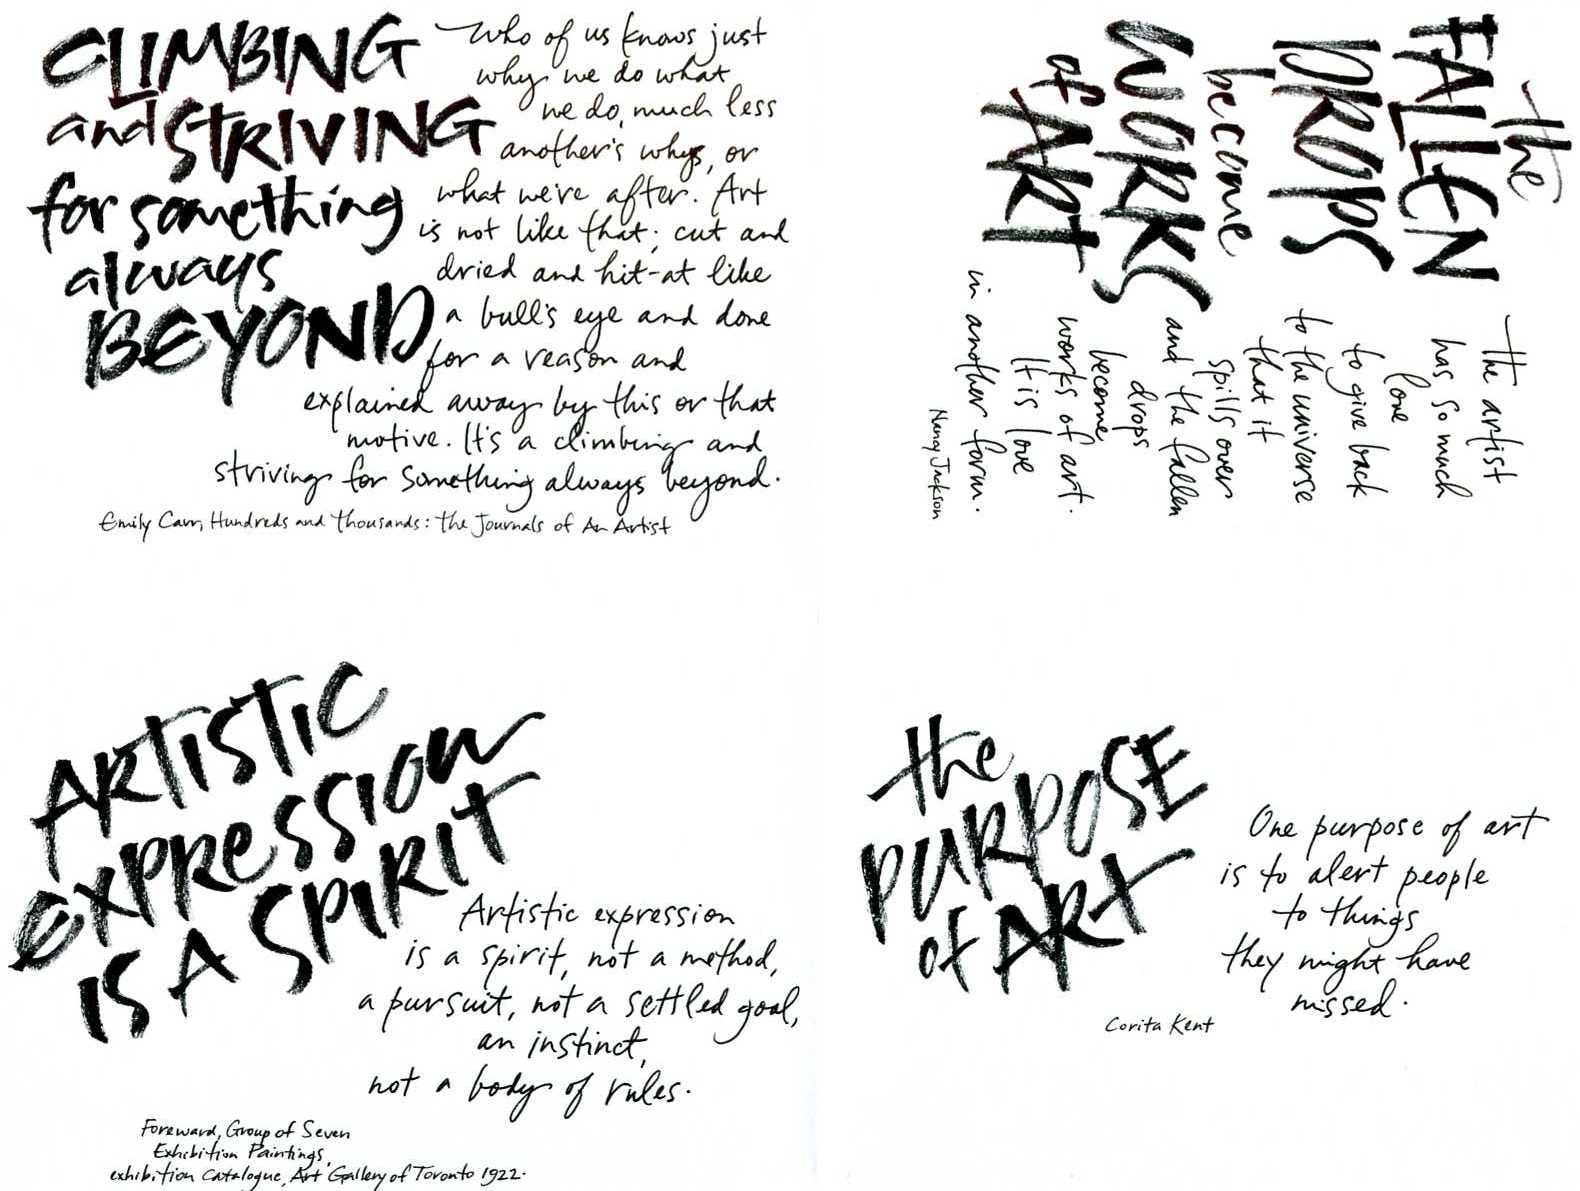 CLIMBING
and STRIVING
for something
always
BEYOND
Who of us knows just
why we do what
we do, much less
another's whys, or
what we're after. Art
is not like that; cut and
dried and hit-at like
a bull's eye and done
for a reason and
explained away by this or that
motive. It's a climbing and
striving for something always beyond.
Emily Carr, Hundreds and Thousands: The Journals of An Artist
the
FALLEN
DROPS
become
WORKS
of ART
The artist
has so much
love
to give back
to the universe
that it
spills over
and the fallen
drops
become
works of art.
It is love
in another form.
Nancy Jackson
ARTISTIC
EXPRESSION
IS A SPIRIT
Artistic expression
is a spirit, not a method,
a pursuit, not a settled goal,
an instinct,
not a body of rules.
Foreward, Group of Seven
Exhibition Paintings,
exhibition catalogue, Art Gallery of Toronto 1922.
the
PURPOSE
of ART
One purpose of art
is to alert people
to things
they might have
missed.
Corita Kent